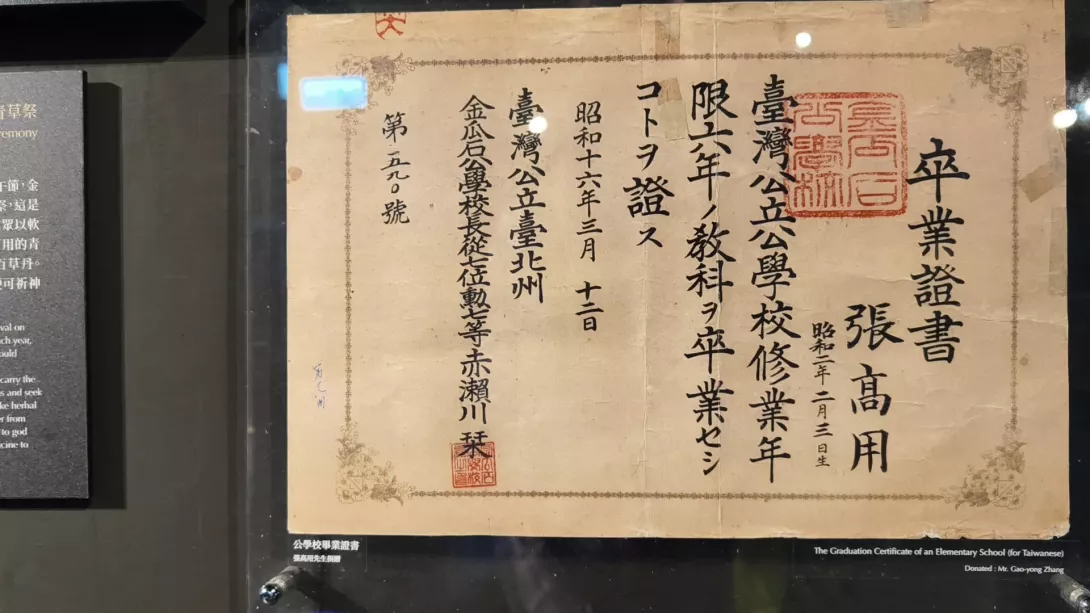 卒業證書
張高用
昭和二年二月三日生
臺灣公立公學校修業年
限六年ノ教科ヲ卒業セシ
コトヲ證ス
昭和十六年三月 十二日
臺灣公立臺北州
金瓜石公學校長從七位勳七等赤瀨川 栞
第一五九〇號
公學校畢業證書
張高用先生捐贈
The Graduation Certificate of an Elementary School (for Taiwanese)
Donated : Mr. Gao-yong Zhang
青草祭
emony
午節，金
祭，這是
眾以軟
用的青
百草丹。
可祈神
val on
ch year,
ould
carry the
s and seek
ke herbal
r from
to god
cine to